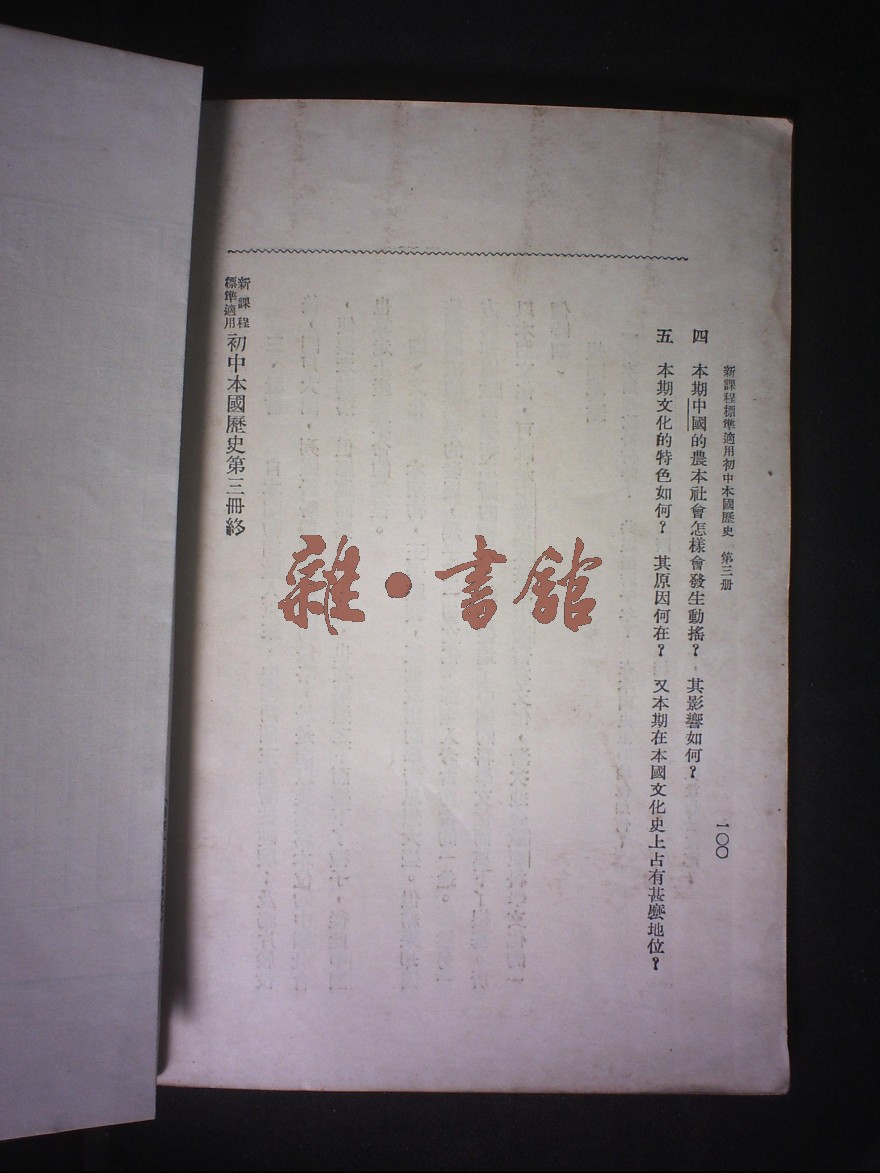 新課程標準適用初中本國歷史　第三册
一〇〇
四　本期中國的農本社會怎樣會發生動搖？　其影響如何？
五　本期文化的特色如何？　其原因何在？　又本期在本國文化史上占有甚麼地位？
新課程標準適用　初中本國歷史第三冊終
雜•書館